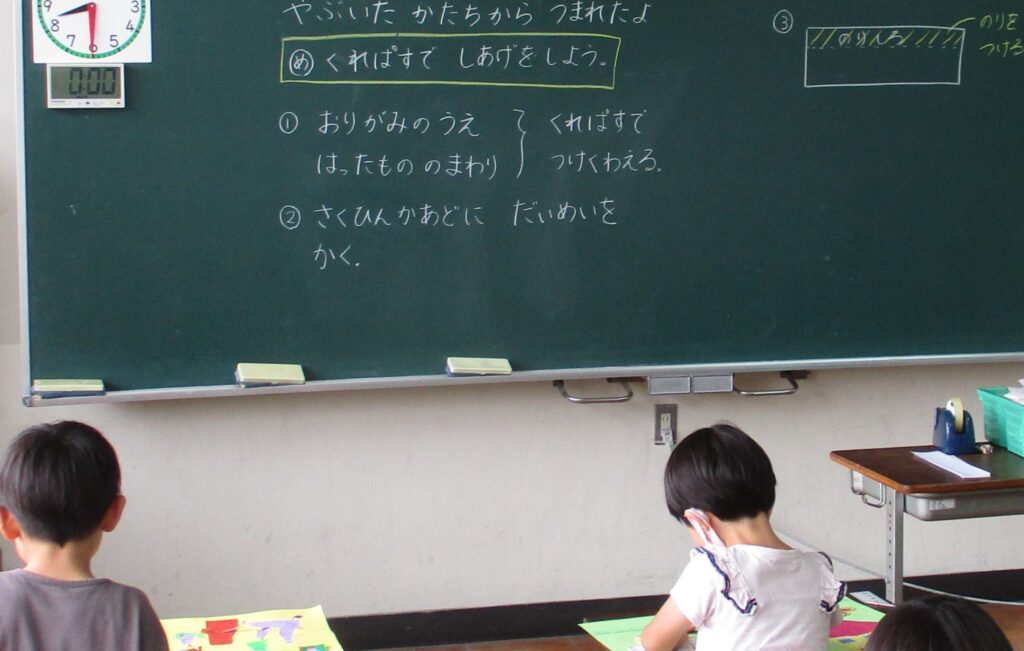 やぶいた かたちから うまれたよ
め くれぱすで しあげをしよう。
① おりがみのうえ
はったもののまわり
くれぱすで
つけくわえる.
② さくひんかあどに だいめいを
かく.
③
のりを
つける
9
3
8
4
7
6
5
0:00